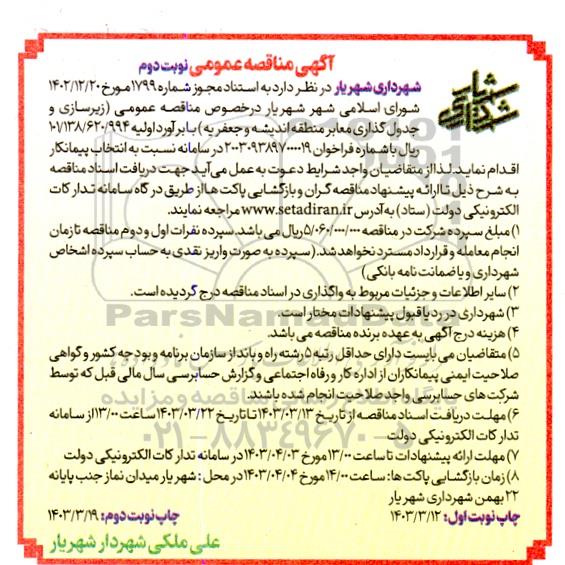 آگهی مناقصه عمومی نوبت دوم
شهرداری شهریار
شهرداری شهریار در نظر دارد به استناد مجوز شماره ۱۷۹۹ مورخ ۱۴۰۲/۱۲/۲۰
شورای اسلامی شهر شهریار درخصوص مناقصه عمومی (زیرسازی و
جدول گذاری معابر منطقه اندیشه و جعفریه) با برآورد اولیه ۱۰۱/۱۳۸/۶۲۰/۹۹۴
ریال با شماره فراخوان ۲۰۰۳۰۹۳۸۹۷۰۰۰۰۱۹ در سامانه نسبت به انتخاب پیمانکار
اقدام نماید. لذا از متقاضیان واجد شرایط دعوت به عمل می آید جهت دریافت اسناد مناقصه
به شرح ذیل تا ارائه پیشنهاد مناقصه گران و بازگشایی پاکت ها از طریق درگاه سامانه تدارکات
الکترونیکی دولت (ستاد) به آدرس www.setadiran.ir مراجعه نمایند.
۱) مبلغ سپرده شرکت در مناقصه ۵/۰۶۰/۰۰۰/۰۰۰ ریال می باشد. سپرده نفرات اول و دوم مناقصه تا زمان
انجام معامله و قرارداد مسترد نخواهد شد. (سپرده به صورت واریز نقدی به حساب سپرده اشخاص
شهرداری و یا ضمانت نامه بانکی)
۲) سایر اطلاعات و جزئیات مربوط به واگذاری در اسناد مناقصه درج گردیده است.
۳) شهرداری در رد یا قبول پیشنهادات مختار است.
۴) هزینه درج آگهی به عهده برنده مناقصه می باشد.
۵) متقاضیان می بایست دارای حداقل رتبه ۵ رشته راه و باند از سازمان برنامه و بودجه کشور و گواهی
صلاحیت ایمنی پیمانکاران از اداره کار و رفاه اجتماعی و گزارش حسابرسی سال مالی قبل که توسط
شرکت های حسابرسی واجد صلاحیت انجام شده باشند.
۶) مهلت دریافت اسناد مناقصه از تاریخ ۱۴۰۳/۰۳/۱۳ تا تاریخ ۱۴۰۳/۰۳/۲۲ ساعت ۱۳/۰۰ از سامانه
تدارکات الکترونیکی دولت
۷) مهلت ارائه پیشنهادات تا ساعت ۱۳/۰۰ مورخ ۱۴۰۳/۰۴/۰۳ در سامانه تدارکات الکترونیکی دولت
۸) زمان بازگشایی پاکت ها: ساعت ۱۴/۰۰ مورخ ۱۴۰۳/۰۴/۰۴ در محل: شهریار میدان نماز جنب پایانه
۲۲ بهمن شهرداری شهریار
چاپ نوبت اول: ۱۴۰۳/۳/۱۲ چاپ نوبت دوم: ۱۴۰۳/۳/۱۹
علی ملکی شهردار شهریار
ParsNamadData
۰۲۱-۸۸۳۴۹۶۷۰-۵